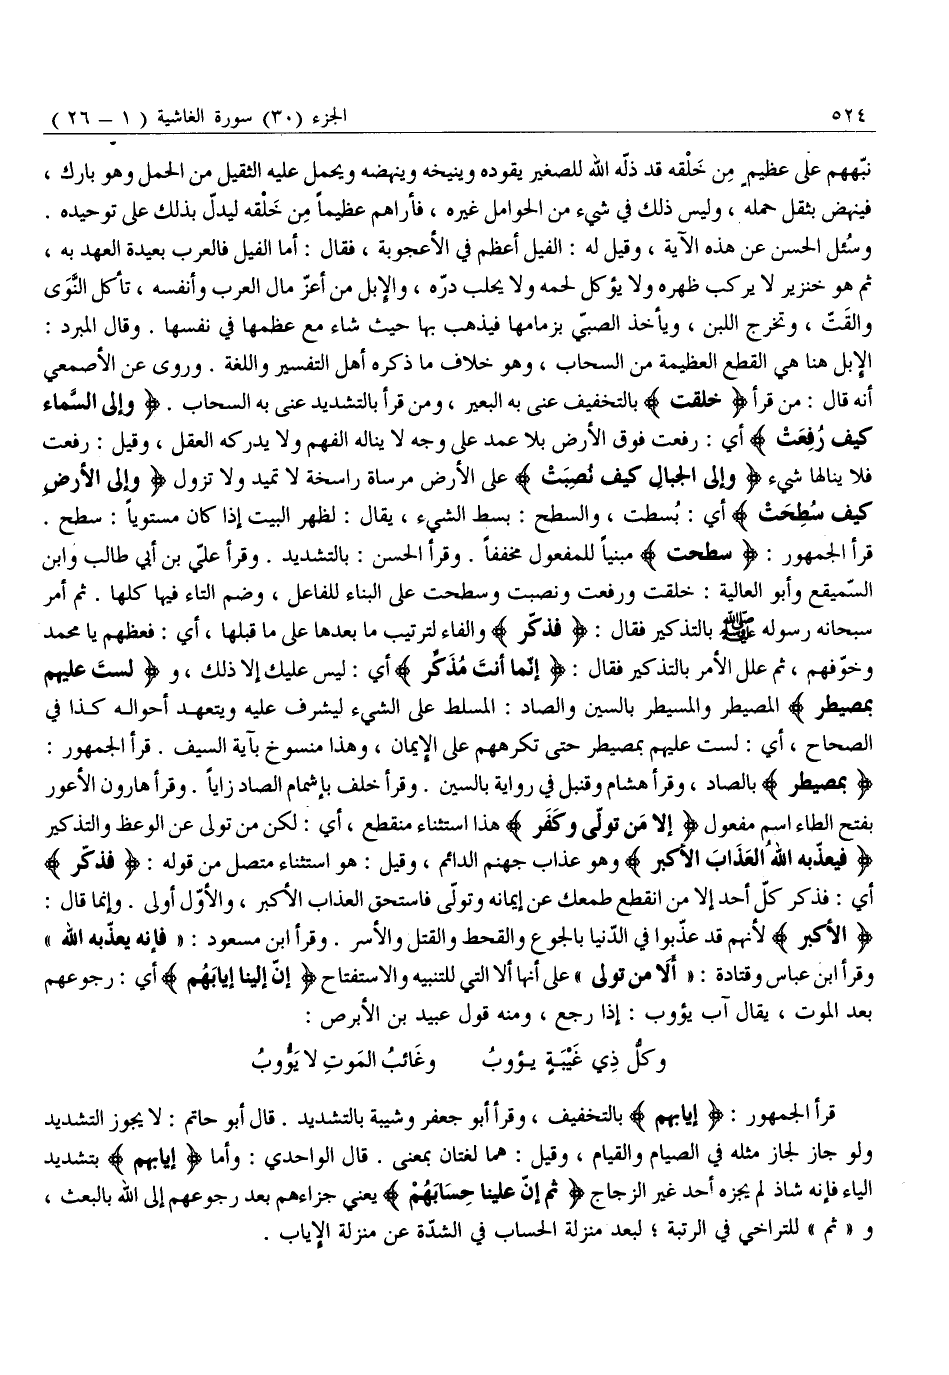 ٥٢٤ الجزء (٣٠) سورة الغاشية ( ١ – ٢٦ )
نبّههم على عظيمٍ مِن خَلْقه قد ذلّه الله للصغير يقوده وينيخه وينهضه ويحمل عليه الثقيل من الحمل وهو بارك ،
فينهض بثقل حمله ، وليس ذلك في شيء من الحوامل غيره ، فأراهم عظيماً مِن خَلْقه ليدلّ بذلك على توحيده .
وسُئل الحسن عن هذه الآية ، وقيل له : الفيل أعظم في الأعجوبة ، فقال : أما الفيل فالعرب بعيدة العهد به ،
ثم هو خنزير لا يركب ظهره ولا يؤكل لحمه ولا يحلب درّه ، والإبل من أعزّ مال العرب وأنفسه ، تأكل النَّوَى
والقَتّ ، وتخرج اللبن ، ويأخذ الصبيّ بزمامها فيذهب بها حيث شاء مع عظمها في نفسها . وقال المبرد :
الإبل هنا هي القطع العظيمة من السحاب ، وهو خلاف ما ذكره أهل التفسير واللغة . وروى عن الأصمعي
أنه قال : من قرأ ﴿ خلقت ﴾ بالتخفيف عنى به البعير ، ومن قرأ بالتشديد عنى به السحاب . ﴿ وإلى السَّماء
كيف رُفِعَتْ ﴾ أي : رفعت فوق الأرض بلا عمد على وجه لا يناله الفهم ولا يدركه العقل ، وقيل : رفعت
فلا ينالها شيء ﴿ وإلى الجبالِ كيف نُصِبَتْ ﴾ على الأرض مرساة راسخة لا تميد ولا تزول ﴿ وإلى الأرضِ
كيف سُطِحَتْ ﴾ أي : بُسطت ، والسطح : بسط الشيء ، يقال : لظهر البيت إذا كان مستوياً : سطح .
قرأ الجمهور : ﴿ سطحت ﴾ مبنياً للمفعول مخففاً . وقرأ الحسن : بالتشديد . وقرأ عليّ بن أبي طالب وابن
السّميقع وأبو العالية : خلقت ورفعت ونصبت وسطحت على البناء للفاعل ، وضم التاء فيها كلها . ثم أمر
سبحانه رسوله ﷺ بالتذكير فقال : ﴿ فذكّر ﴾ والفاء لترتيب ما بعدها على ما قبلها ، أي : فعظهم يا محمد
وخوّفهم ، ثم علل الأمر بالتذكير فقال : ﴿ إنّما أنتَ مُذَكِّر ﴾ أي : ليس عليك إلا ذلك ، و ﴿ لستَ عليهم
بمصيطر ﴾ المصيطر والمسيطر بالسين والصاد : المسلط على الشيء ليشرف عليه ويتعهد أحواله كذا في
الصحاح ، أي : لست عليهم بمصيطر حتى تكرههم على الإيمان ، وهذا منسوخ بآية السيف . قرأ الجمهور :
﴿ بمصيطر ﴾ بالصاد ، وقرأ هشام وقنبل في رواية بالسين . وقرأ خلف بإشمام الصاد زاياً . وقرأ هارون الأعور
بفتح الطاء اسم مفعول ﴿ إلا مَن تولّى وكَفَر ﴾ هذا استثناء منقطع ، أي : لكن من تولى عن الوعظ والتذكير
﴿ فيعذّبه اللهُ العَذَابَ الأكبر ﴾ وهو عذاب جهنم الدائم ، وقيل : هو استثناء متصل من قوله : ﴿ فذكّر ﴾
أي : فذكر كلّ أحد إلا من انقطع طمعك عن إيمانه وتولّى فاستحق العذاب الأكبر ، والأوّل أولى . وإنما قال :
﴿ الأكبر ﴾ لأنهم قد عذّبوا في الدّنيا بالجوع والقحط والقتل والأسر . وقرأ ابن مسعود : « فإنه يعذّبه الله »
وقرأ ابن عباس وقتادة : « ألَا من تولى » على أنها ألا التي للتنبيه والاستفتاح ﴿ إنّ إلينا إيابَهُم ﴾ أي : رجوعهم
بعد الموت ، يقال آب يؤوب : إذا رجع ، ومنه قول عبيد بن الأبرص :
وكلُّ ذِي غَيْبَةٍ يـؤوبُ وغَائبُ المَوتِ لا يَؤُوبُ
قرأ الجمهور : ﴿ إيابهم ﴾ بالتخفيف ، وقرأ أبو جعفر وشيبة بالتشديد . قال أبو حاتم : لا يجوز التشديد
ولو جاز لجاز مثله في الصيام والقيام ، وقيل : هما لغتان بمعنى . قال الواحدي : وأما ﴿ إيابهم ﴾ بتشديد
الياء فإنه شاذ لم يجزه أحد غير الزجاج ﴿ ثم إنّ علينا حِسَابَهُمْ ﴾ يعني جزاءهم بعد رجوعهم إلى الله بالبعث ،
و « ثم » للتراخي في الرتبة ؛ لبعد منزلة الحساب في الشدّة عن منزلة الإياب .